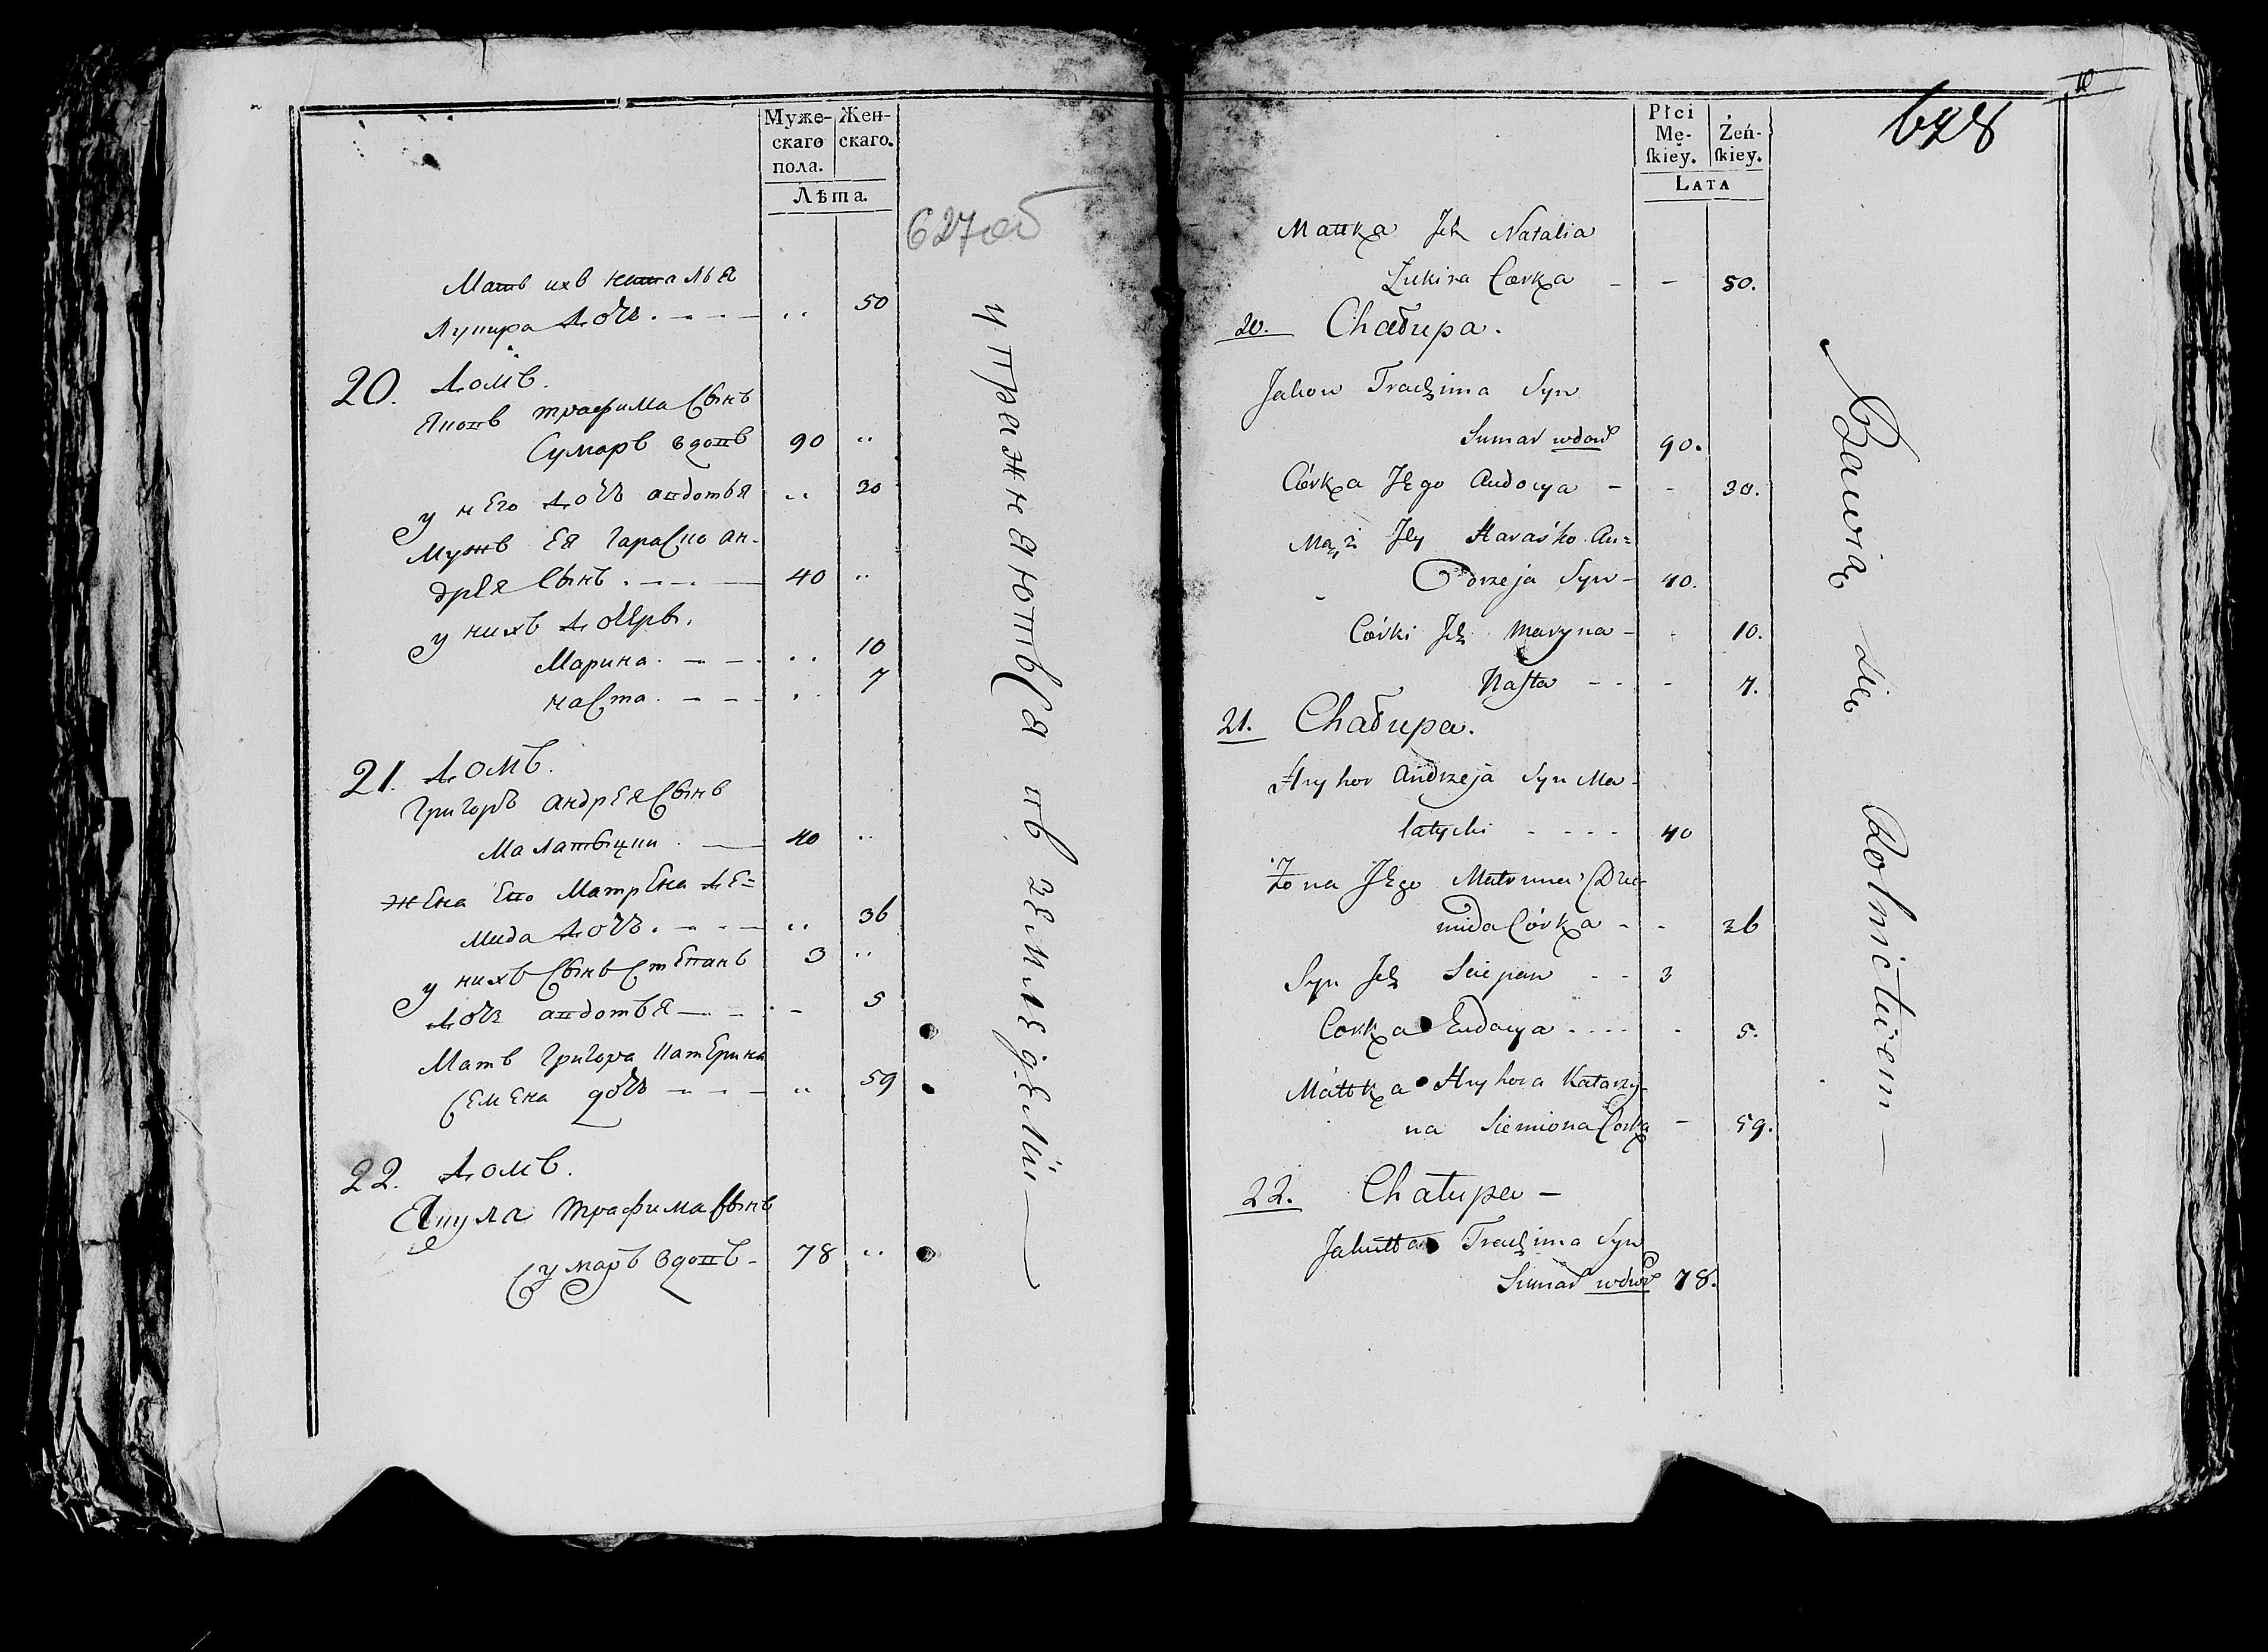 Муже-
скаго
пола.
Жен-
скаго.
Лѣта.
627об
Мать ихъ наталья
Лукира дочь . - - - .. 50
20. Домъ.
Яковъ трафима Сынъ
Сумаръ вдовъ 90 ..
у него дочь авдотья .. 30
Мужъ Ея гараСко ан-
дрея Сынъ . - - 40 ..
у нихъ дочерь.
Марина . - - .. 10
наСта . - - - .. 7
21. Домъ.
григоръ андрея Сынъ
Малатыцки . - 40 ..
жена Его Матрена де=
мида дочь . - - - .. 36
у нихъ Сынъ Степанъ 3 ..
дочь авдотья - - - 5
Мать григора катерина
Семена дочь - - - .. 59
22. Домъ.
Якула трафима Сынъ
Сумаръ вдовъ - 78 ..
упражняютьСя въ земледелiи —
Płci
Mę-
ſkiey.
Żeń-
ſkiey.
LATA
628
Mattka Ich Natalia
Łukira Corka - - 50.
20. Chałupa.
Jakow Trachima Syn
Sumar wdow 90.
Córka Jego Audocya - - 30.
Mąż Jey Haraśko An=
drzeja Syn - 40.
Córki Ich Maryna - - 10.
Naſta - - - 7.
21. Chałupa.
Hryhor Andrzeja Syn Ma-
latycki - - - - 40
Żona Jego Matruna Dzie-
mida Córka - - 36
Syn Ich Sciepan - - 3
Corka Eudocya - - - - - 5.
Mattka Hryhora Katarzy-
na Siemiona Corka - 59.
22. Chałupa —
Jakułła Trachima Syn
Sumar wdow 78.
Bawią się Rolnictwem —